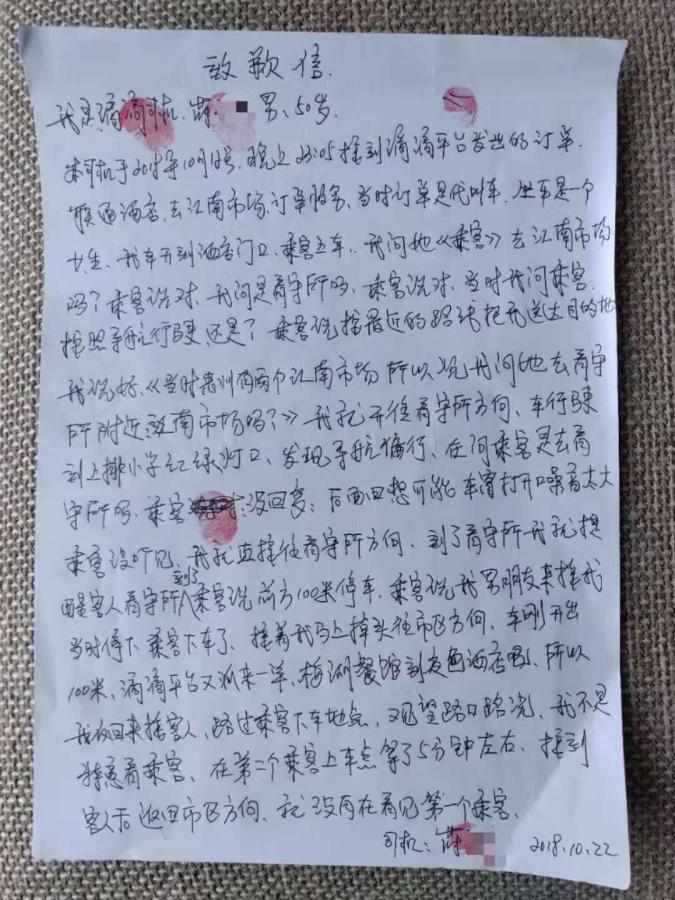 致歉信.
我是滴滴司机.薛 男、50岁、
本司机于2018年10月 号、晚上 接到滴滴平台发出的订单.
酒店、去江南市场、订单服务、当时订单是代叫车.坐车是一个
女生、我车开到酒店门口、乘客上车..我问她《乘客》去江南市场
吗?乘客说对、我问是看守所吗、乘客说对、当时我问乘客.
按照导航行驶、还是?乘客说按最近的路线把我送去目的地
我说好、《当时惠州有两个江南市场所以说我问她去看守
所附近江南市场吗?》我就开往看守所方向、车行驶
到上排小学红绿灯口、发现导航偏行、在问乘客是去看
守所吗、乘客 没回复;后面回想可能车窗打开噪音太大
乘客没听见、我就直接往看守所方向、到了看守所我就提
醒客人看守所到了乘客说前方100米停车、乘客说我男朋友来接我
当时停下乘客下车了、接着我马上掉头往市区方向、车刚开出
100米、滴滴平台又派来一单、梅湖餐馆到 酒店 、所以
我返回来接客人、路过乘客下车地点、观望路口路况、我不是
特意看乘客、在第二个乘客上车点等了5分钟左右、接到
客人后返回市区方向、就没再在看见第一个乘客、
司机:薛 2018.10.22